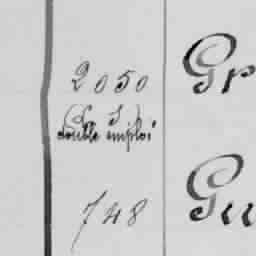 2050 Gr
double emploi
748 Gu